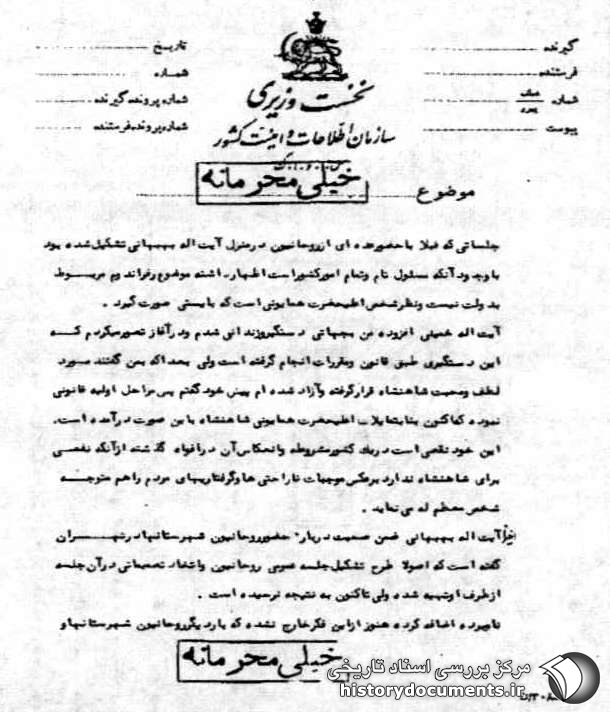 گیرنده
فرستنده
شماره
پیوست
تاریخ
شماره
شماره پرونده گیرنده
شماره پرونده فرستنده
نخست وزیری
سازمان اطلاعات و امنیت کشور
خیلی محرمانه
موضوع
جلساتی که قبلا با حضور عده ای از روحانیون در منزل آیت اله بهبهانی تشکیل شده بود
با وجود آنکه مسئول تام و تمام امور کشور است اظهار داشته موضوع رفراندوم مربوط
به دولت نیست و نظر شخص اعلیحضرت همایونی است که بایستی صورت گیرد .
آیت اله بهبهانی افزوده من دستگیر و زندانی شدم و در آغاز تصور میکردم که
این دستگیری طبق قانون و مقررات انجام گرفته است ولی بعد که بمن گفتند مورد
لطف و مرحمت شاهنشاه قرار گرفته و آزاد شده ام پیش خود گفتم پس مراحل اولیه قانونی
نبوده که اکنون بنا بتمایلات اعلیحضرت همایونی شاهنشاه باین صورت درآمده است.
این خود نقصی است در یک کشور مشروطه و انعکاس آن در افواه گذشته از آنکه نفعی
برای شاهنشاه ندارد برعکس موجبات ناراحتی ها و گرفتاریهای مردم را هم متوجه
شخص معظم له می نماید .
آیت اله بهبهانی ضمن صحبت درباره حضور روحانیون شهرستانها در تهران
گفته است که اصولا طرح تشکیل جلسه عمومی روحانیون و اتخاذ تصمیماتی در آن جلسه
از طرف او تهیه شده ولی تاکنون به نتیجه نرسیده است .
نامبرده اضافه کرده هنوز از این فکر خارج نشده که بار دیگر روحانیون شهرستانها و
خیلی محرمانه
مرکز بررسی اسناد تاریخی
historydocuments.ir